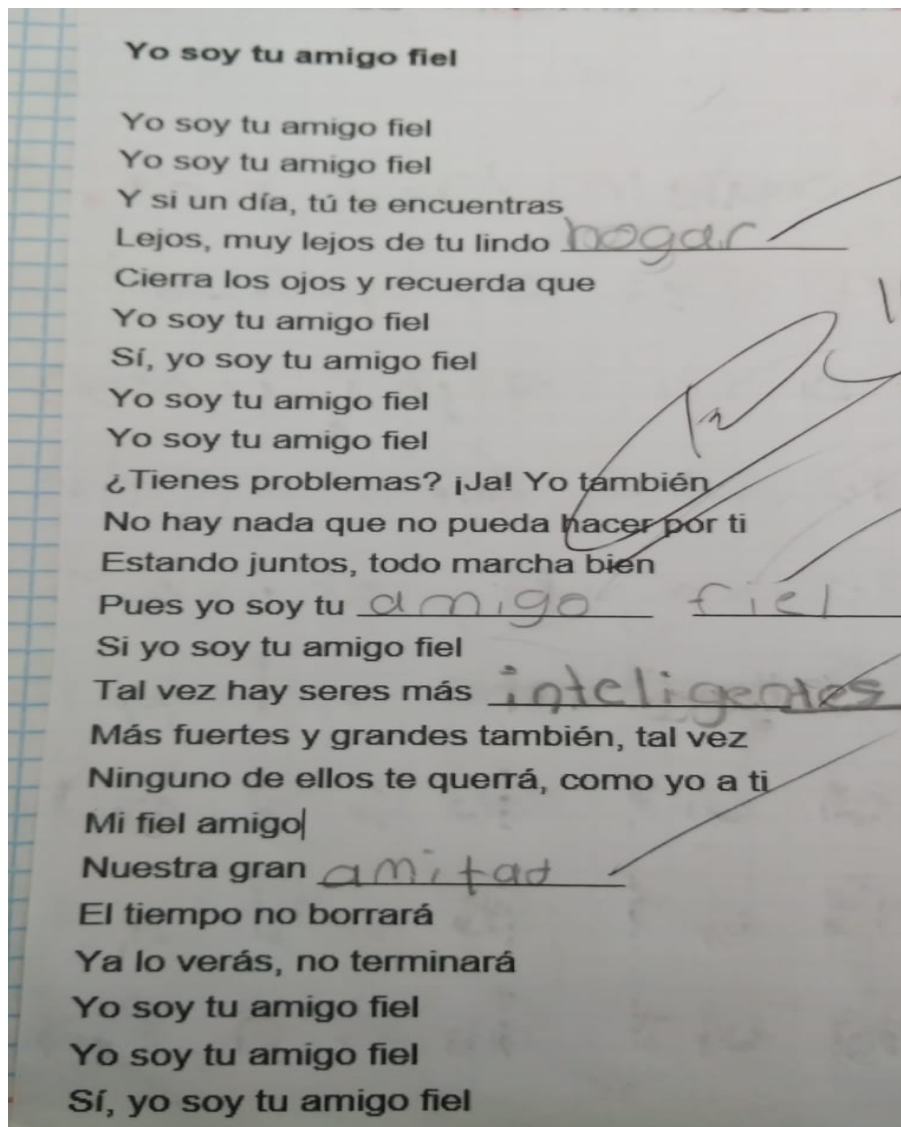 Yo soy tu amigo fiel
Yo soy tu amigo fiel
Yo soy tu amigo fiel
Y si un día, tú te encuentras
Lejos, muy lejos de tu lindo hogar
Cierra los ojos y recuerda que
Yo soy tu amigo fiel
Sí, yo soy tu amigo fiel
Yo soy tu amigo fiel
Yo soy tu amigo fiel
¿Tienes problemas? ¡Ja! Yo también
No hay nada que no pueda hacer por ti
Estando juntos, todo marcha bien
Pues yo soy tu amigo fiel
Si yo soy tu amigo fiel
Tal vez hay seres más inteligentes
Más fuertes y grandes también, tal vez
Ninguno de ellos te querrá, como yo a ti
Mi fiel amigo
Nuestra gran amitad
El tiempo no borrará
Ya lo verás, no terminará
Yo soy tu amigo fiel
Yo soy tu amigo fiel
Sí, yo soy tu amigo fiel